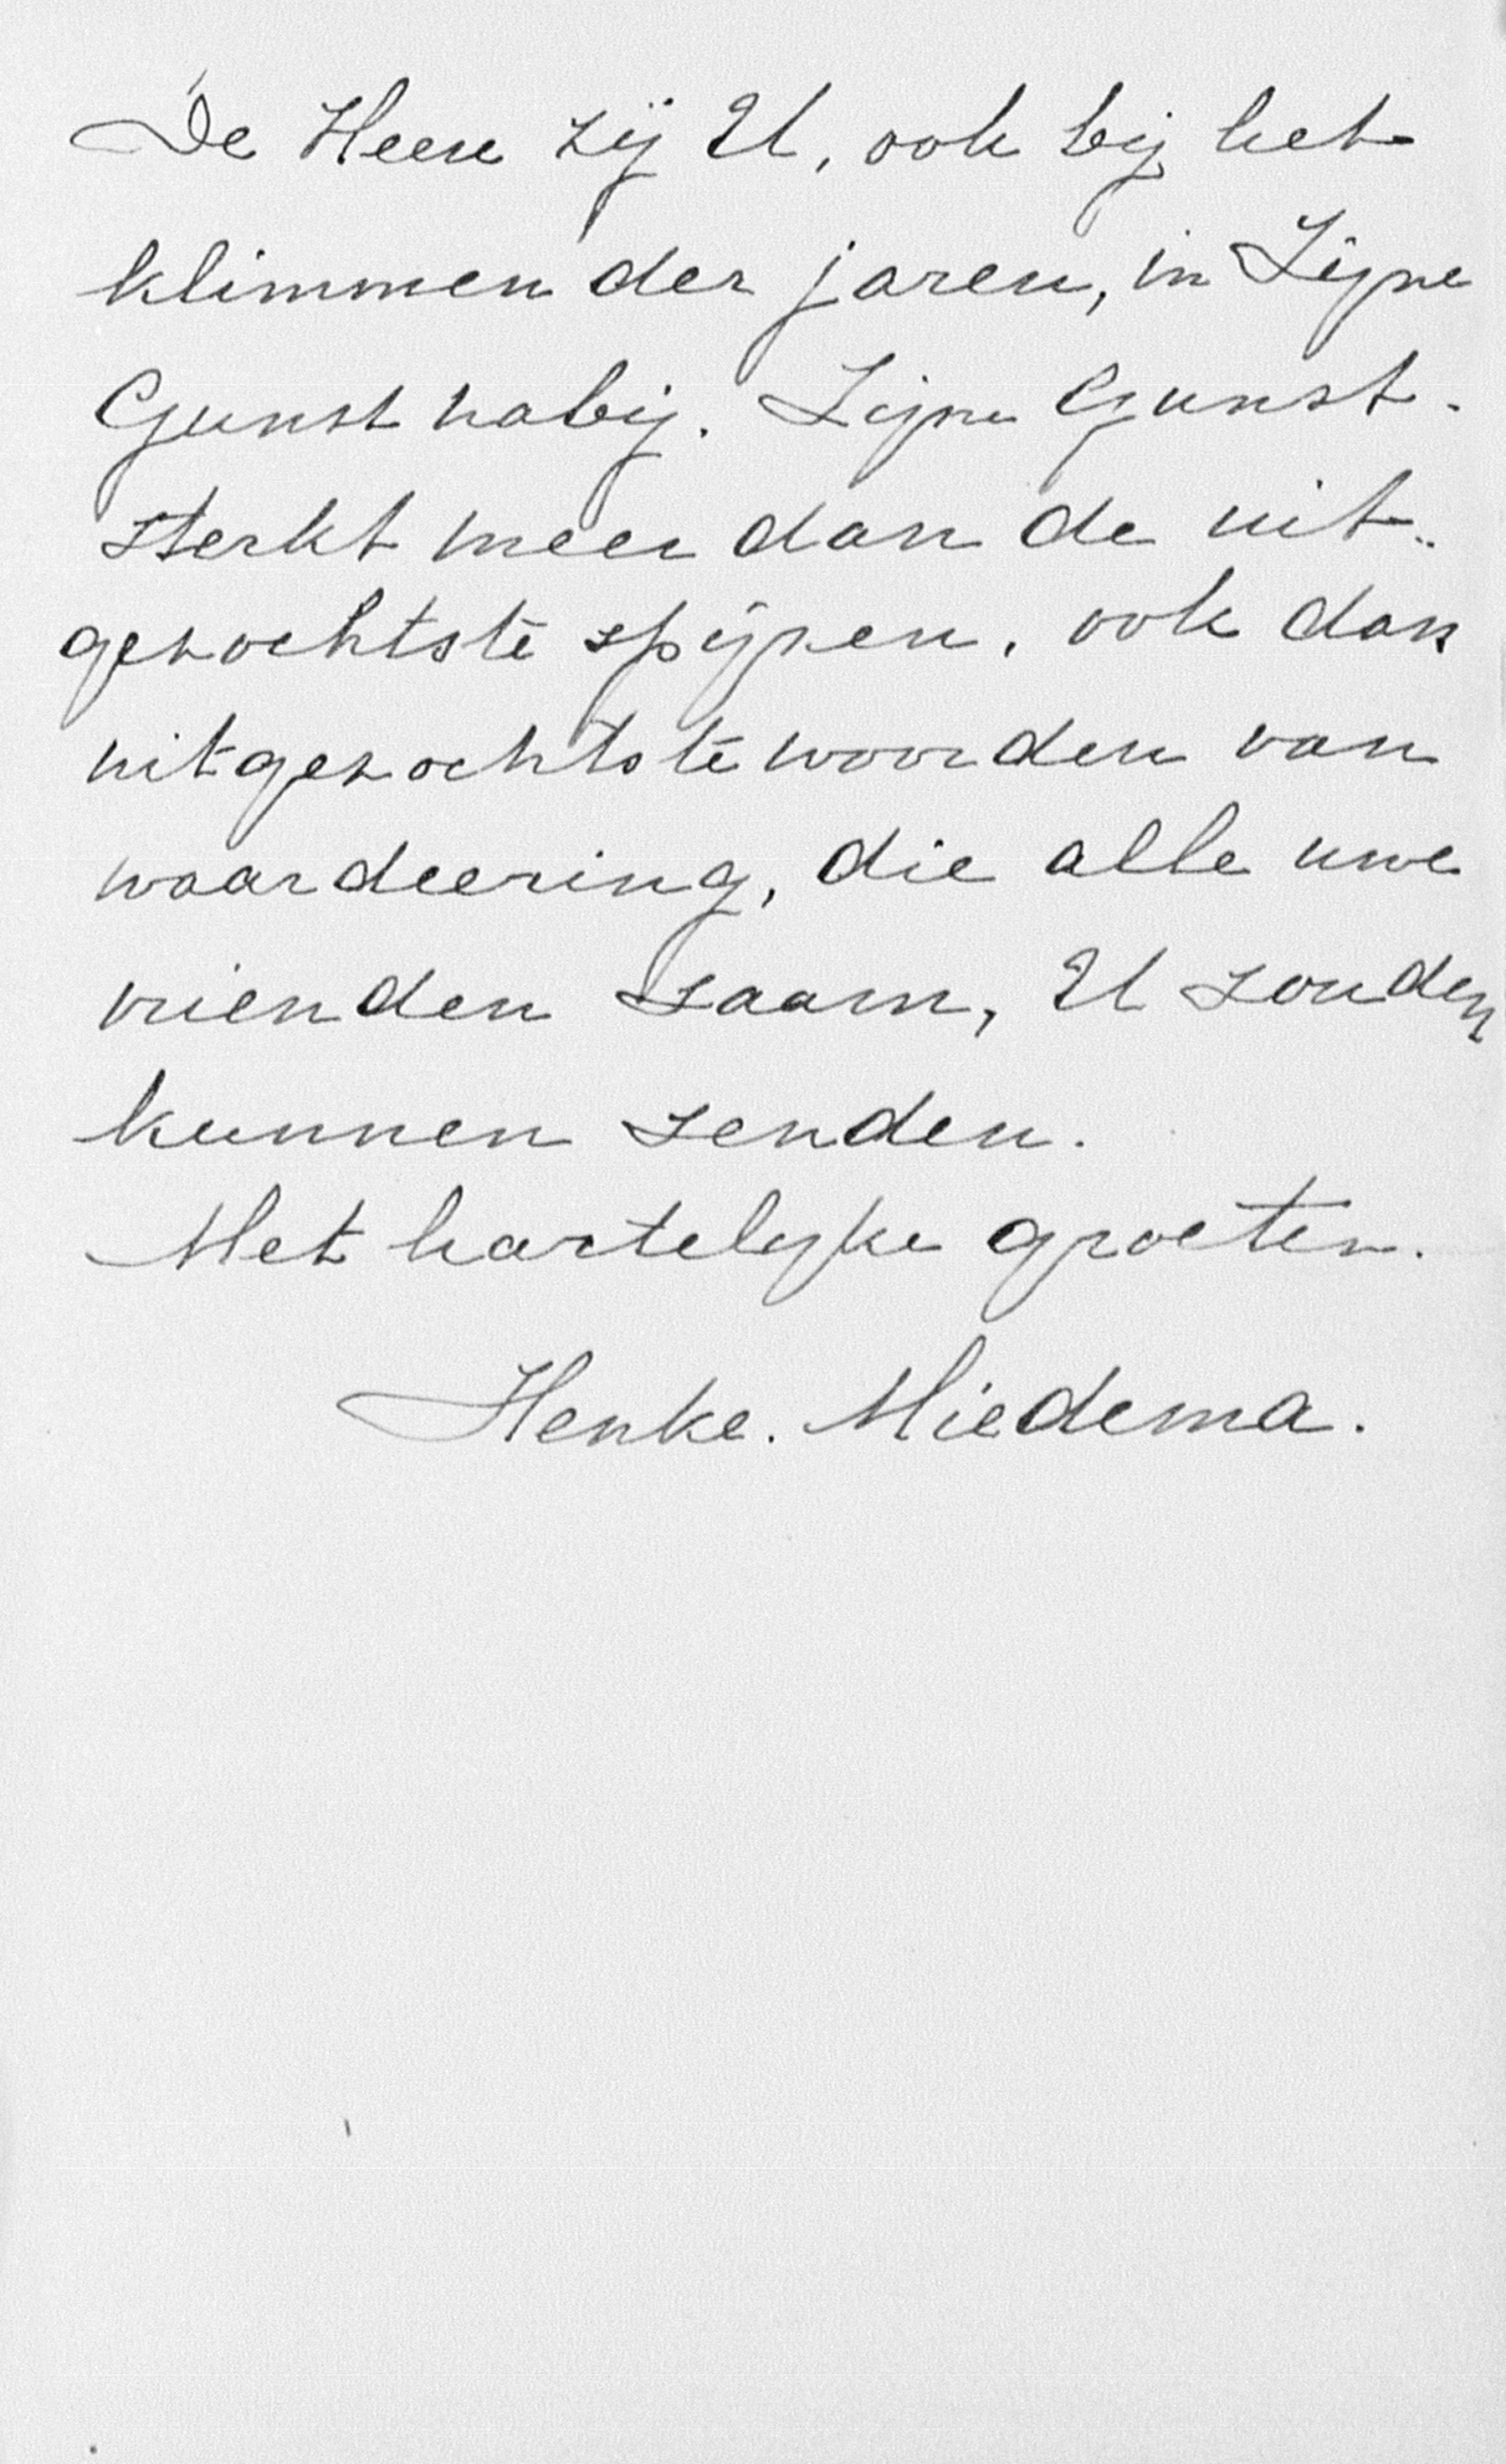 De Heere zij U, ook bij het
klimmen der jaren, in Zijne
Gunst nabij. Zijne Gunst.
sterkt meer dan de uit-
gezochtste spijzen, ook dan
uitgezochtste woorden van
waardeering, die alle uwe
vrienden zaam, U zouden
kunnen zenden.
Met hartelijke groeten.
Henke. Miedema.